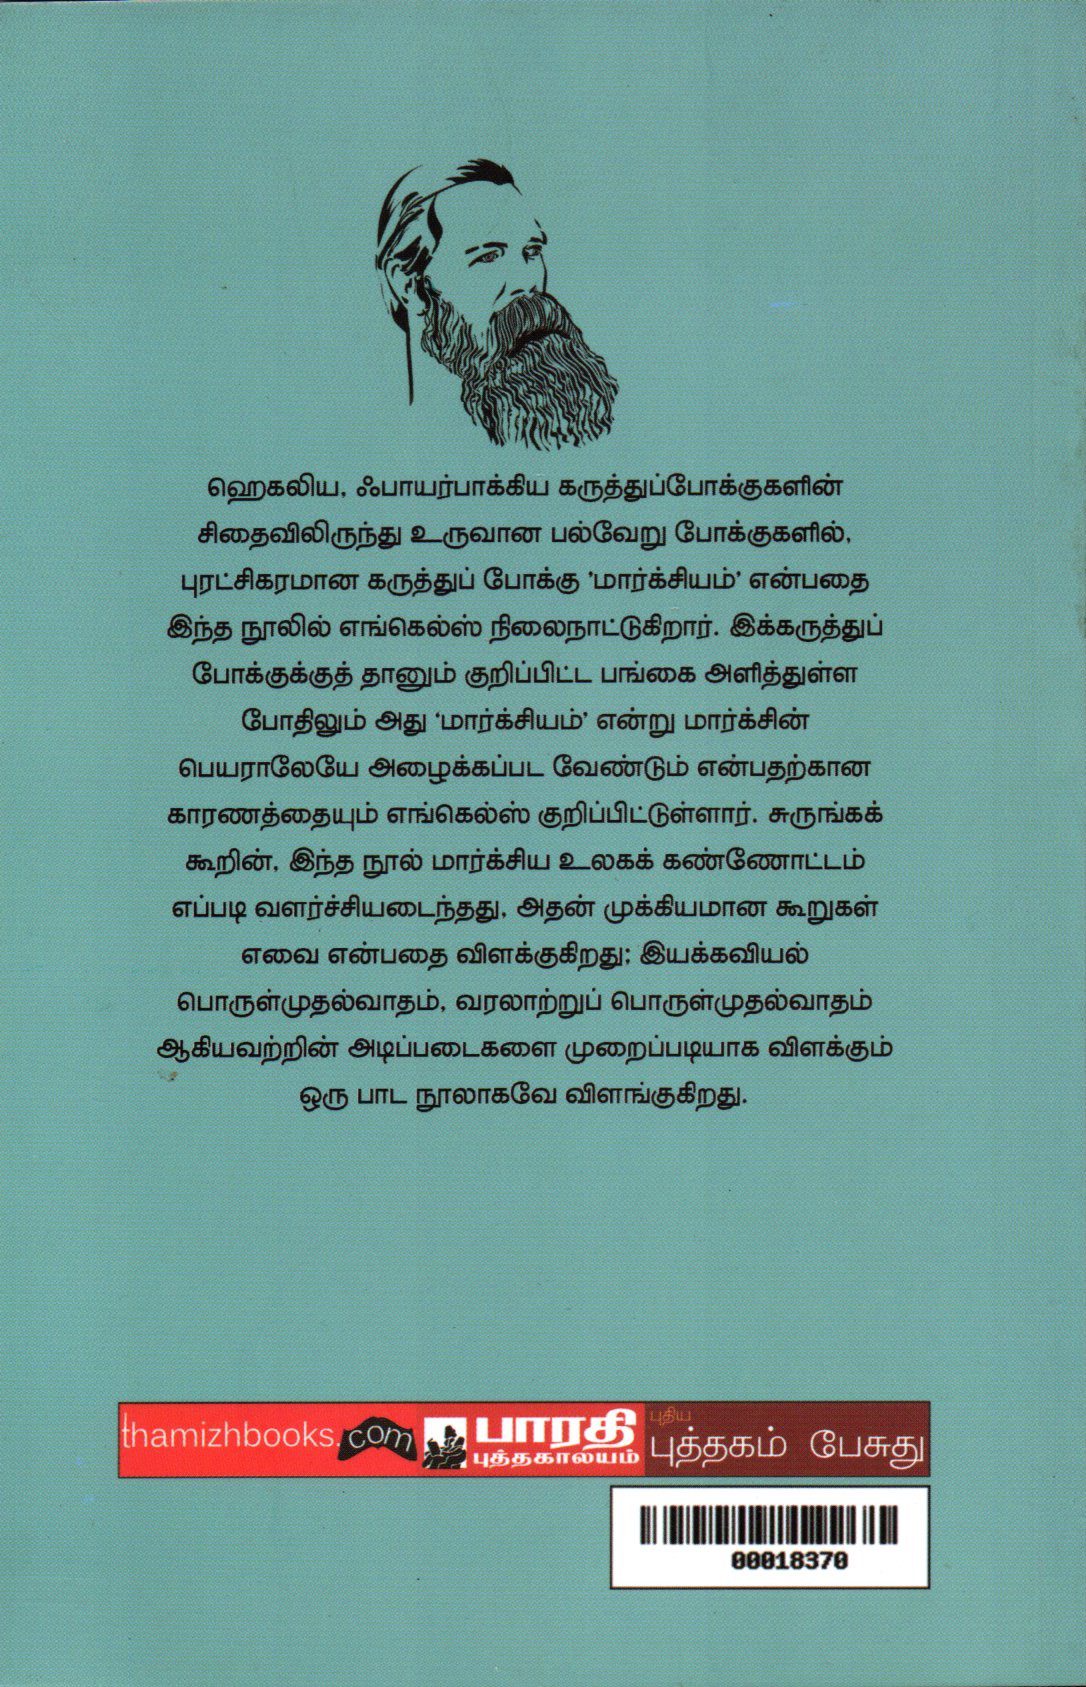 ஹெகலிய, ஃபாயர்பாக்கிய கருத்துப்போக்குகளின்
சிதைவிலிருந்து உருவான பல்வேறு போக்குகளில்,
புரட்சிகரமான கருத்துப் போக்கு 'மார்க்சியம்' என்பதை
இந்த நூலில் எங்கெல்ஸ் நிலைநாட்டுகிறார். இக்கருத்துப்
போக்குக்குத் தானும் குறிப்பிட்ட பங்கை அளித்துள்ள
போதிலும் அது 'மார்க்சியம்' என்று மார்க்சின்
பெயராலேயே அழைக்கப்பட வேண்டும் என்பதற்கான
காரணத்தையும் எங்கெல்ஸ் குறிப்பிட்டுள்ளார். சுருங்கக்
கூறின், இந்த நூல் மார்க்சிய உலகக் கண்ணோட்டம்
எப்படி வளர்ச்சியடைந்தது, அதன் முக்கியமான கூறுகள்
எவை என்பதை விளக்குகிறது; இயக்கவியல்
பொருள்முதல்வாதம், வரலாற்றுப் பொருள்முதல்வாதம்
ஆகியவற்றின் அடிப்படைகளை முறைப்படியாக விளக்கும்
ஒரு பாட நூலாகவே விளங்குகிறது.
thamizhbooks.com
பாரதி
புத்தகாலயம்
புதிய
புத்தகம் பேசுது
00018370